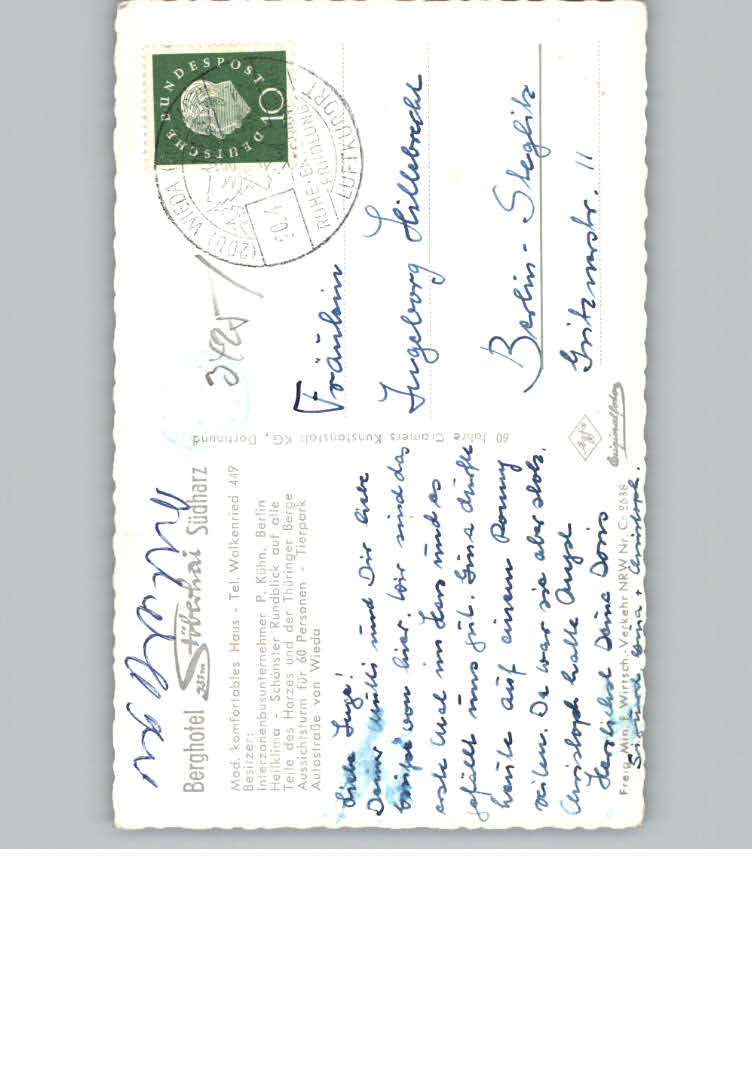 Berghotel Stöberhai Südharz
Mod. komfortables Haus - Tel. Walkenried 449
Besitzer:
Interzonenbusunternehmer P. Kühn, Berlin
Heilklima - Schönster Rundblick auf alle
Teile des Harzes und der Thüringer Berge
Aussichtsturm für 60 Personen - Tierpark
Autostraße von Wieda
Liebe Inge!
Deiner Mutti und Dir liebe
Grüße von hier. Wir sind das
erste Mal im Harz und es
gefällt uns gut. Gina durfte
heute auf einem Ponny
reiten. Da war sie aber stolz.
Christoph hatte Angst
Herzlichst Deine Doris
Gina + Christoph.
Freig. Min. f. Wirtsch.-Verkehr NRW Nr. C-2638
60 Jahre Cramers Kunstanstalt KG, Dortmund
Agfa
Originalfoto
DEUTSCHE BUNDESPOST
10
(20b) WIEDA
RUHE-ERHOLUNG
LUFTKURORT
3425
Fräulein
Ingeborg Hillebrecht
Berlin-Steglitz
11